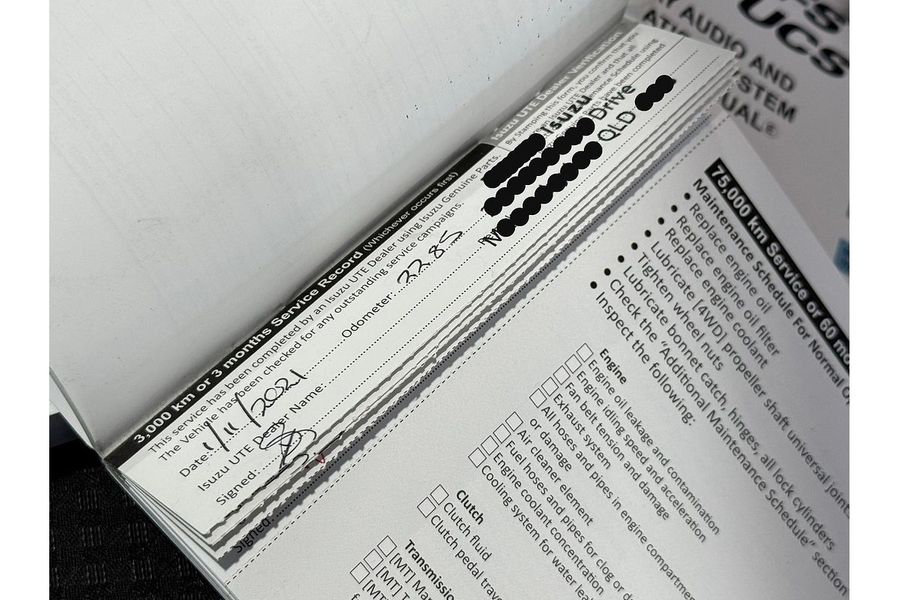 3,000 km or 3 months Service Record (Whichever occurs first)
This service has been completed by an Isuzu UTE Dealer using Isuzu Genuine Parts.
The Vehicle has been checked for any outstanding service campaigns.
Date: 1/11/2021 Odometer: 2285
Isuzu UTE Dealer Name:
Signed:
Signed:
Isuzu UTE Dealer Verification
By Stamping this form, you confirm that you
Isuzu UTE Dealer and that all
Schedule using
have been completed
Isuzu
Drive
QLD
AUDIO AND
STEM
UAL
UCS
75,000 km Service or 60 mo
Maintenance Schedule For Normal O
• Replace engine oil
• Replace engine oil filter
• Replace engine coolant
• Lubricate (4WD) propeller shaft universal joint
• Tighten wheel nuts
• Lubricate bonnet catch, hinges, all lock cylinders
• Check the "Additional Maintenance Schedule" section
• Inspect the following:
Engine
Engine oil leakage and contamination
Engine idling speed and acceleration
Fan belt tension and damage
Exhaust system
All hoses and pipes in engine compartmen
or damage
Air cleaner element
Fuel hoses and pipes for clog or d
Engine coolant concentration
Cooling system for water lea
Clutch
Clutch fluid
Clutch pedal trave
Transmission
[MT] Ma
[MT] T